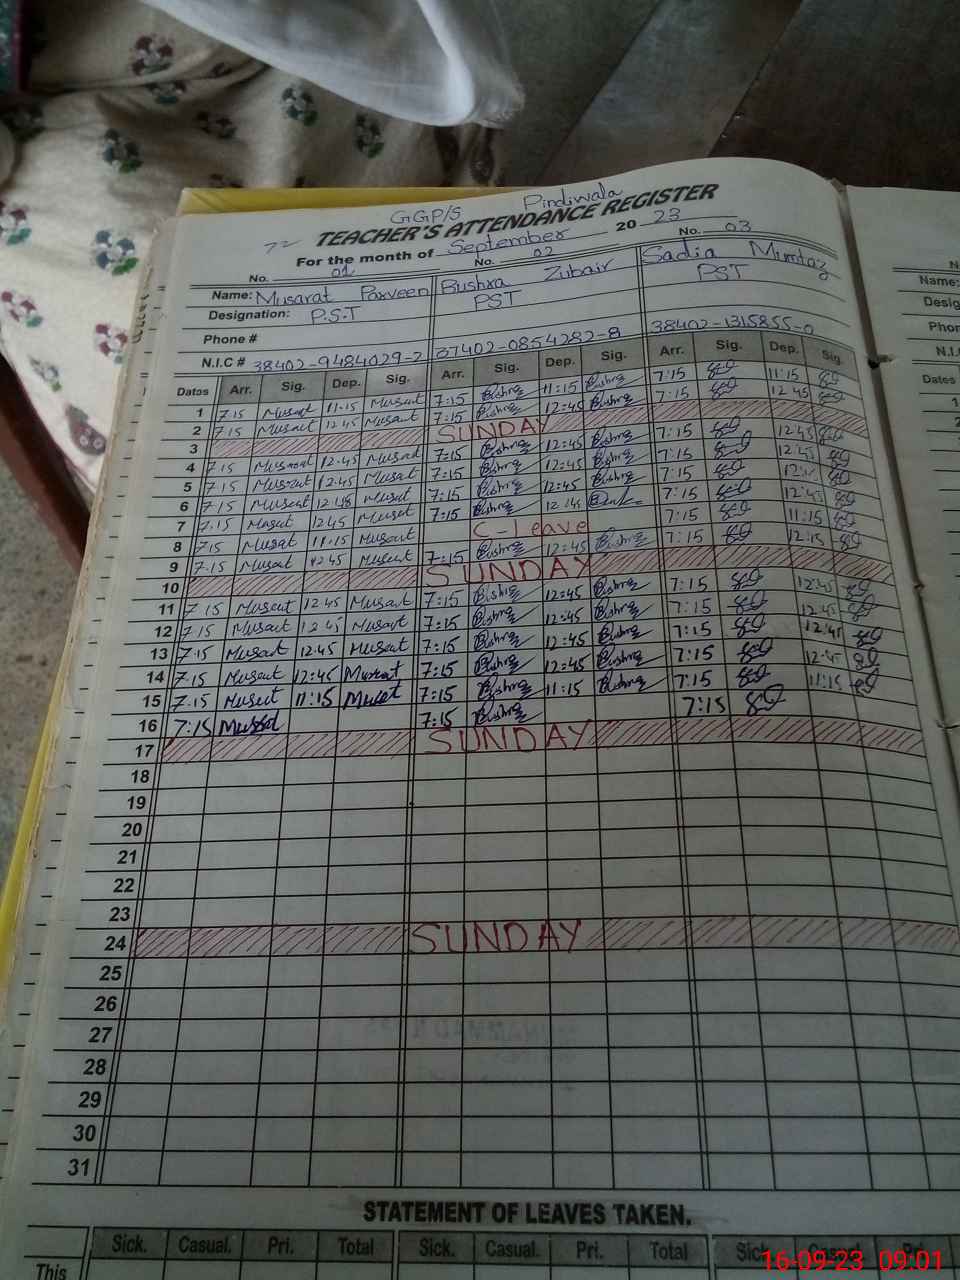 GGP/S Pindiwala
72 TEACHER'S ATTENDANCE REGISTER
For the month of September 2023
No. 01 No. 02 No. 03
Name: Musarat Parveen Bushra Zubair Sadia Mumtaz
Designation: P.S.T PST PST
Phone #
N.I.C # 38402-9484029-2 37402-0854282-8 38402-1315855-0
Dates Arr. Sig. Dep. Sig. Arr. Sig. Dep. Sig. Arr. Sig. Dep. Sig.
1 7.15 Musart 11.15 Musart 7:15 Bushra 11:15 Bushra 7:15 11:15
2 7.15 Musart 12.45 Musart 7:15 Bushra 12:45 Bushra 7:15 12:45
3 SUNDAY
4 7.15 Musart 12.45 Musart 7:15 Bushra 12:45 Bushra 7:15 12:45
5 7.15 Musart 12.45 Musart 7:15 Bushra 12:45 Bushra 7:15 12:45
6 7.15 Musart 12.45 Musart 7:15 Bushra 12:45 Bushra 7:15
7 7.15 Musart 12.45 Musart 7:15 Bushra 12:45 7:15 12:45
8 7.15 Musart 11.15 Musart C-Leave 7:15 11:15
9 7.15 Musart 12.45 Musart 7:15 Bushra 12:45 Bushra 7:15
10 SUNDAY
11 7.15 Musart 12.45 Musart 7:15 Bushra 12:45 Bushra 7:15 12:45
12 7.15 Musart 12.45 Musart 7:15 Bushra 12:45 Bushra 7:15 12:45
13 7.15 Musart 12.45 Musart 7:15 Bushra 12:45 Bushra 7:15 12:45
14 7.15 Musart 12:45 Musart 7:15 Bushra 12:45 Bushra 7:15 12:45
15 7.15 Musart 11:15 Musart 7:15 Bushra 11:15 Bushra 7:15 11:15
16 7:15 Musart 7:15 Bushra 7:15
17 SUNDAY
18
19
20
21
22
23
24 SUNDAY
25
26
27
28
29
30
31
STATEMENT OF LEAVES TAKEN.
Sick. Casual. Pri. Total Sick. Casual. Pri. Total Sick. Pri.
This
16-09-23 09:01